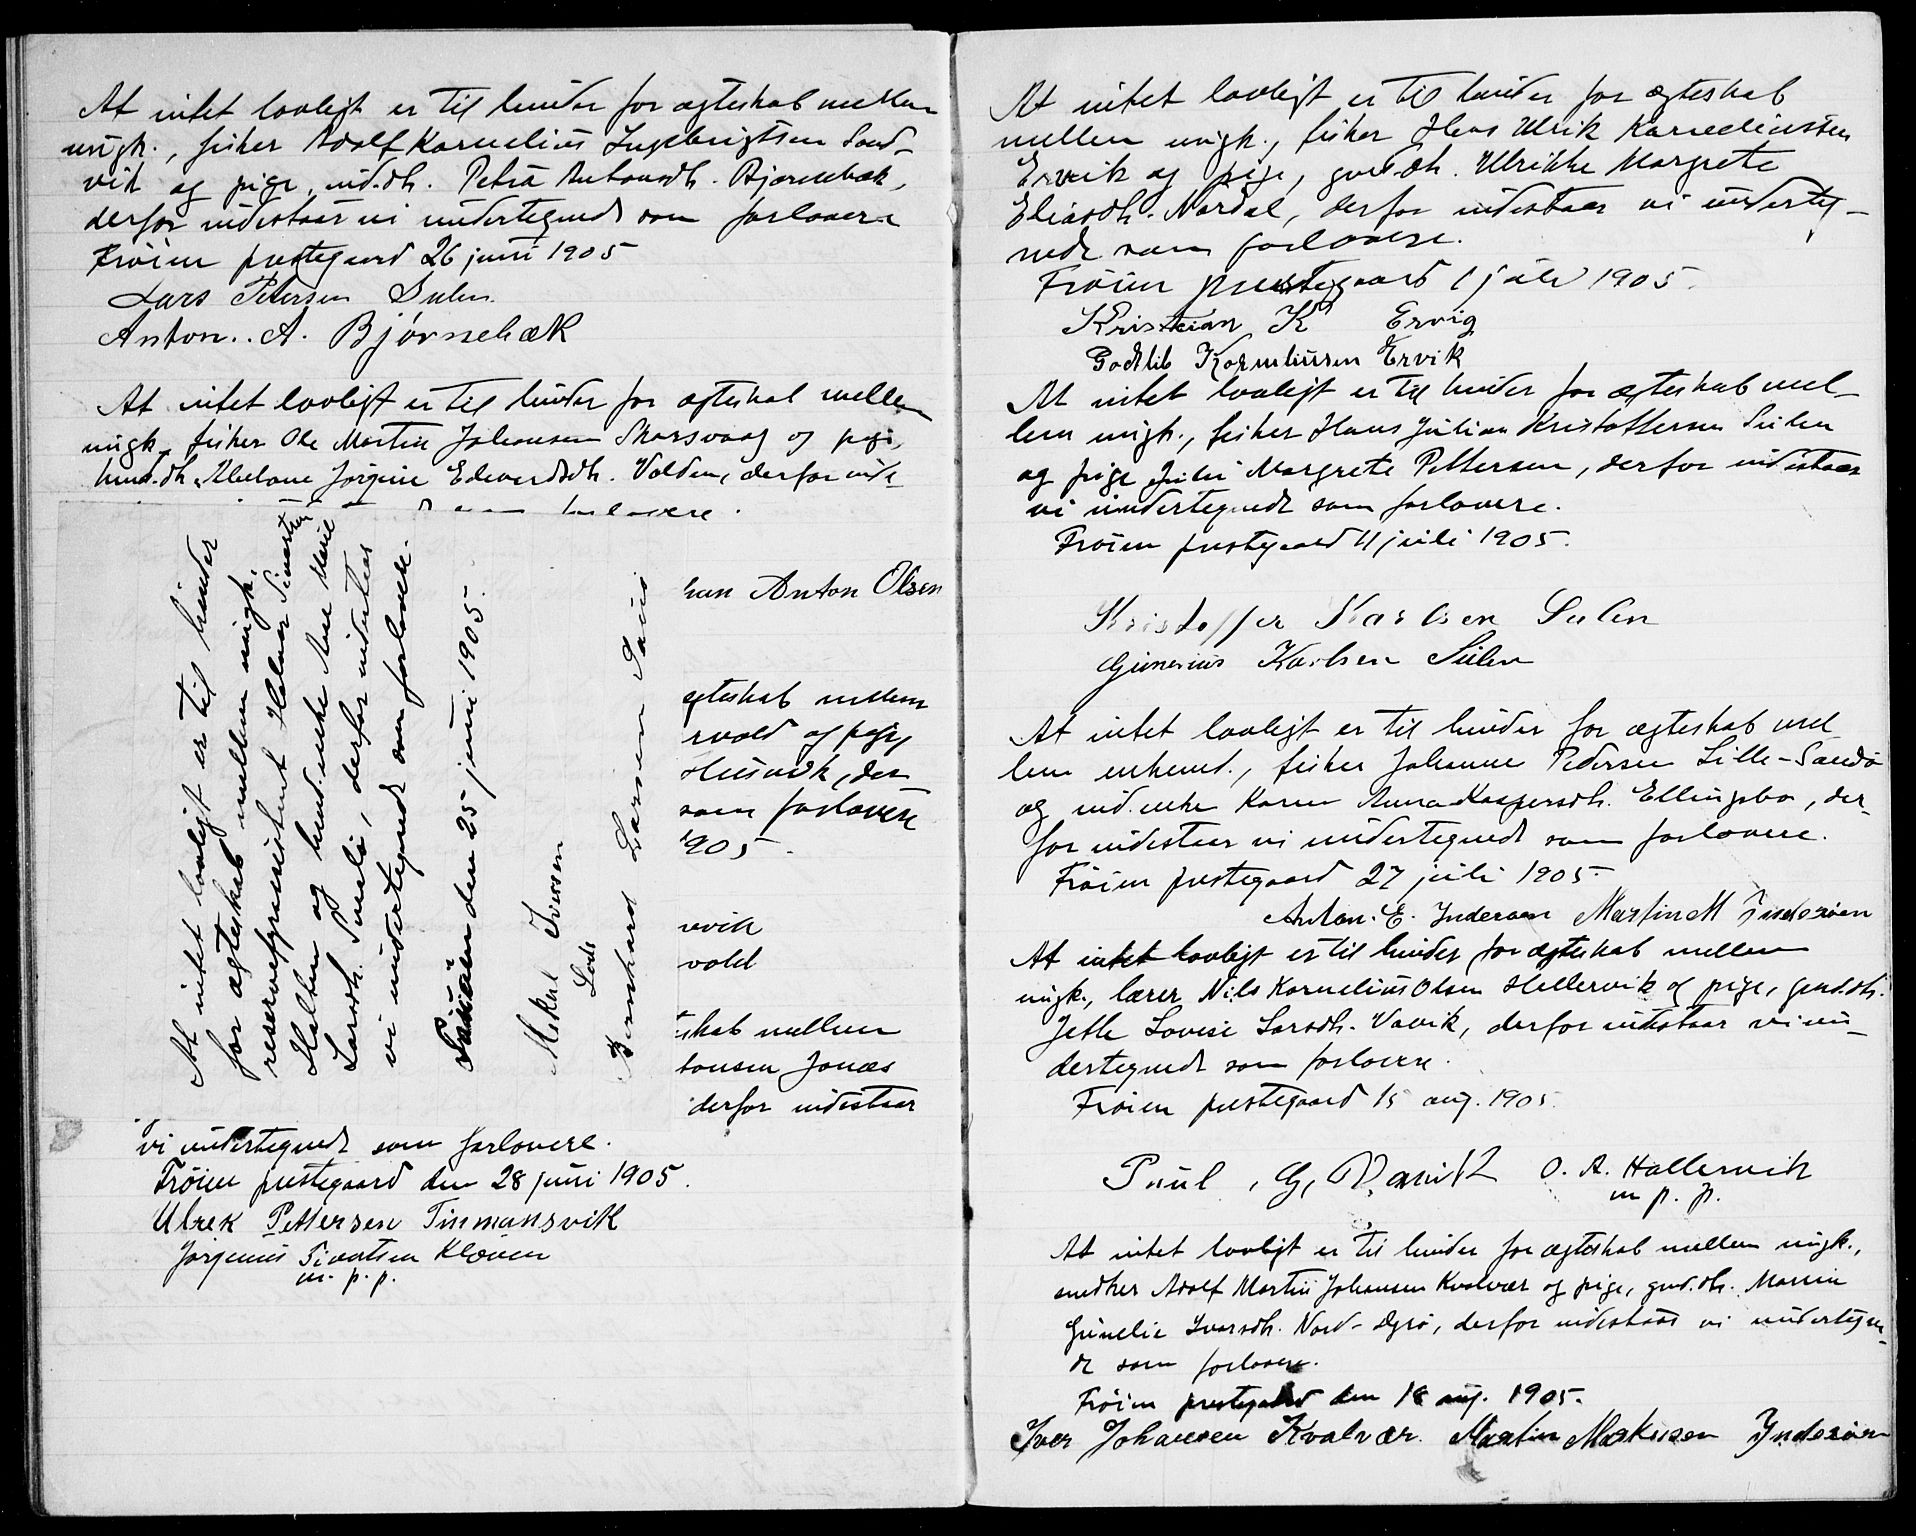 At intet lovligt er til hinder for ægteskab mellem
ungk., fisker Adolf Kornelius Ingebrigtsen Sand-
vik og pige, ind.dt. Petra Antonsdt. Bjørnebæk,
derfor indestaar vi undertegnede som forlovere
Frøien prestegaard 26 juni 1905
Lars Petersen Sulen.
Anton. A. Bjørnebæk
At intet lovligt er til hinder for ægteskab mellem
ungk., fisker Ole Martin Johansen Skarsvaag og pige,
husd.dt. Jørgine Edvardsdt. Volden, derfor inde-
som forlovere.
At intet lovligt er til hinder
for ægteskab mellem ungk.
Halmar Sivertsen
Halten og husd.enke Ane Marie
Larsdt. Sauli, derfor indestaar
vi undertegnede som forlovere.
den 25 juni 1905.
Mikal Iversen
Bernhard Larsen
han Anton Olsen
egteskab mellem
rvold og pige,
Husvik, der-
som forlovere
905.
vvik
vold
skab mellem
tonsen Jonas
derfor indestaar
vi undertegnede som forlovere.
Frøien prestegaard den 28 juni 1905.
Ulrek Pettersen Tinmansvik
Jørginus Sivertsen Kløven
m. p. p.
At intet lovligt er til hinder for ægteskab
mellem ungk., fisker Hans Ulrik Korneliussen
Ervik og pige, gaardt. Ulrikke Margrete
Eliasdt. Nordal, derfor indestaar vi underteg-
nede som forlovere.
Frøien prestegaard 1 juli 1905.
Kristian K Ervig
Godtlib Korneliusen Ervik
At intet lovligt er til hinder for ægteskab mel-
lem ungk., fisker Hans Julian Kristoffersen Sulen
og pige Julie Margrete Pettersen, derfor indestaar
vi undertegnede som forlovere.
Frøien prestegaard 11 juli 1905.
Kristoffer Karlsen Sulen
Gunerius Karlsen Sulen
At intet lovligt er til hinder for ægteskab mel
lem enkemd., fisker Johannes Pedersen Lille-Sandø
og ind.enke Karen Anna Kaspersdt. Ellingsbo, der-
for indestaar vi undertegnede som forlovere.
Frøien prestegaard 27 juli 1905.
Anton. E. Inderøen Martin M Inderøen
At intet lovligt er til hinder for ægteskab mellem
ungk., lærer Nils Kornelius Olsen Hellervik og pige, gmd.dt.
Jette Lovise Larsdt. Vavik, derfor indestaar vi un-
dertegnede som forlovere.
Frøien prestegaard 15 aug. 1905.
Paul. G. Vavik O. A. Hallervik
m. p. p.
At intet lovligt er til hinder for ægteskab mellem ungk.,
snedker Adolf Martin Johansen Kvalvær og pige, gmd.dt.
Gunelie Ivarsdt. Nord-Dyrø, derfor indestaar vi undertegne-
de som forlovere.
Frøien prestegaard den 18 aug. 1905.
Iver Johansen Kvalvær. Martin Markusen Ynderøen